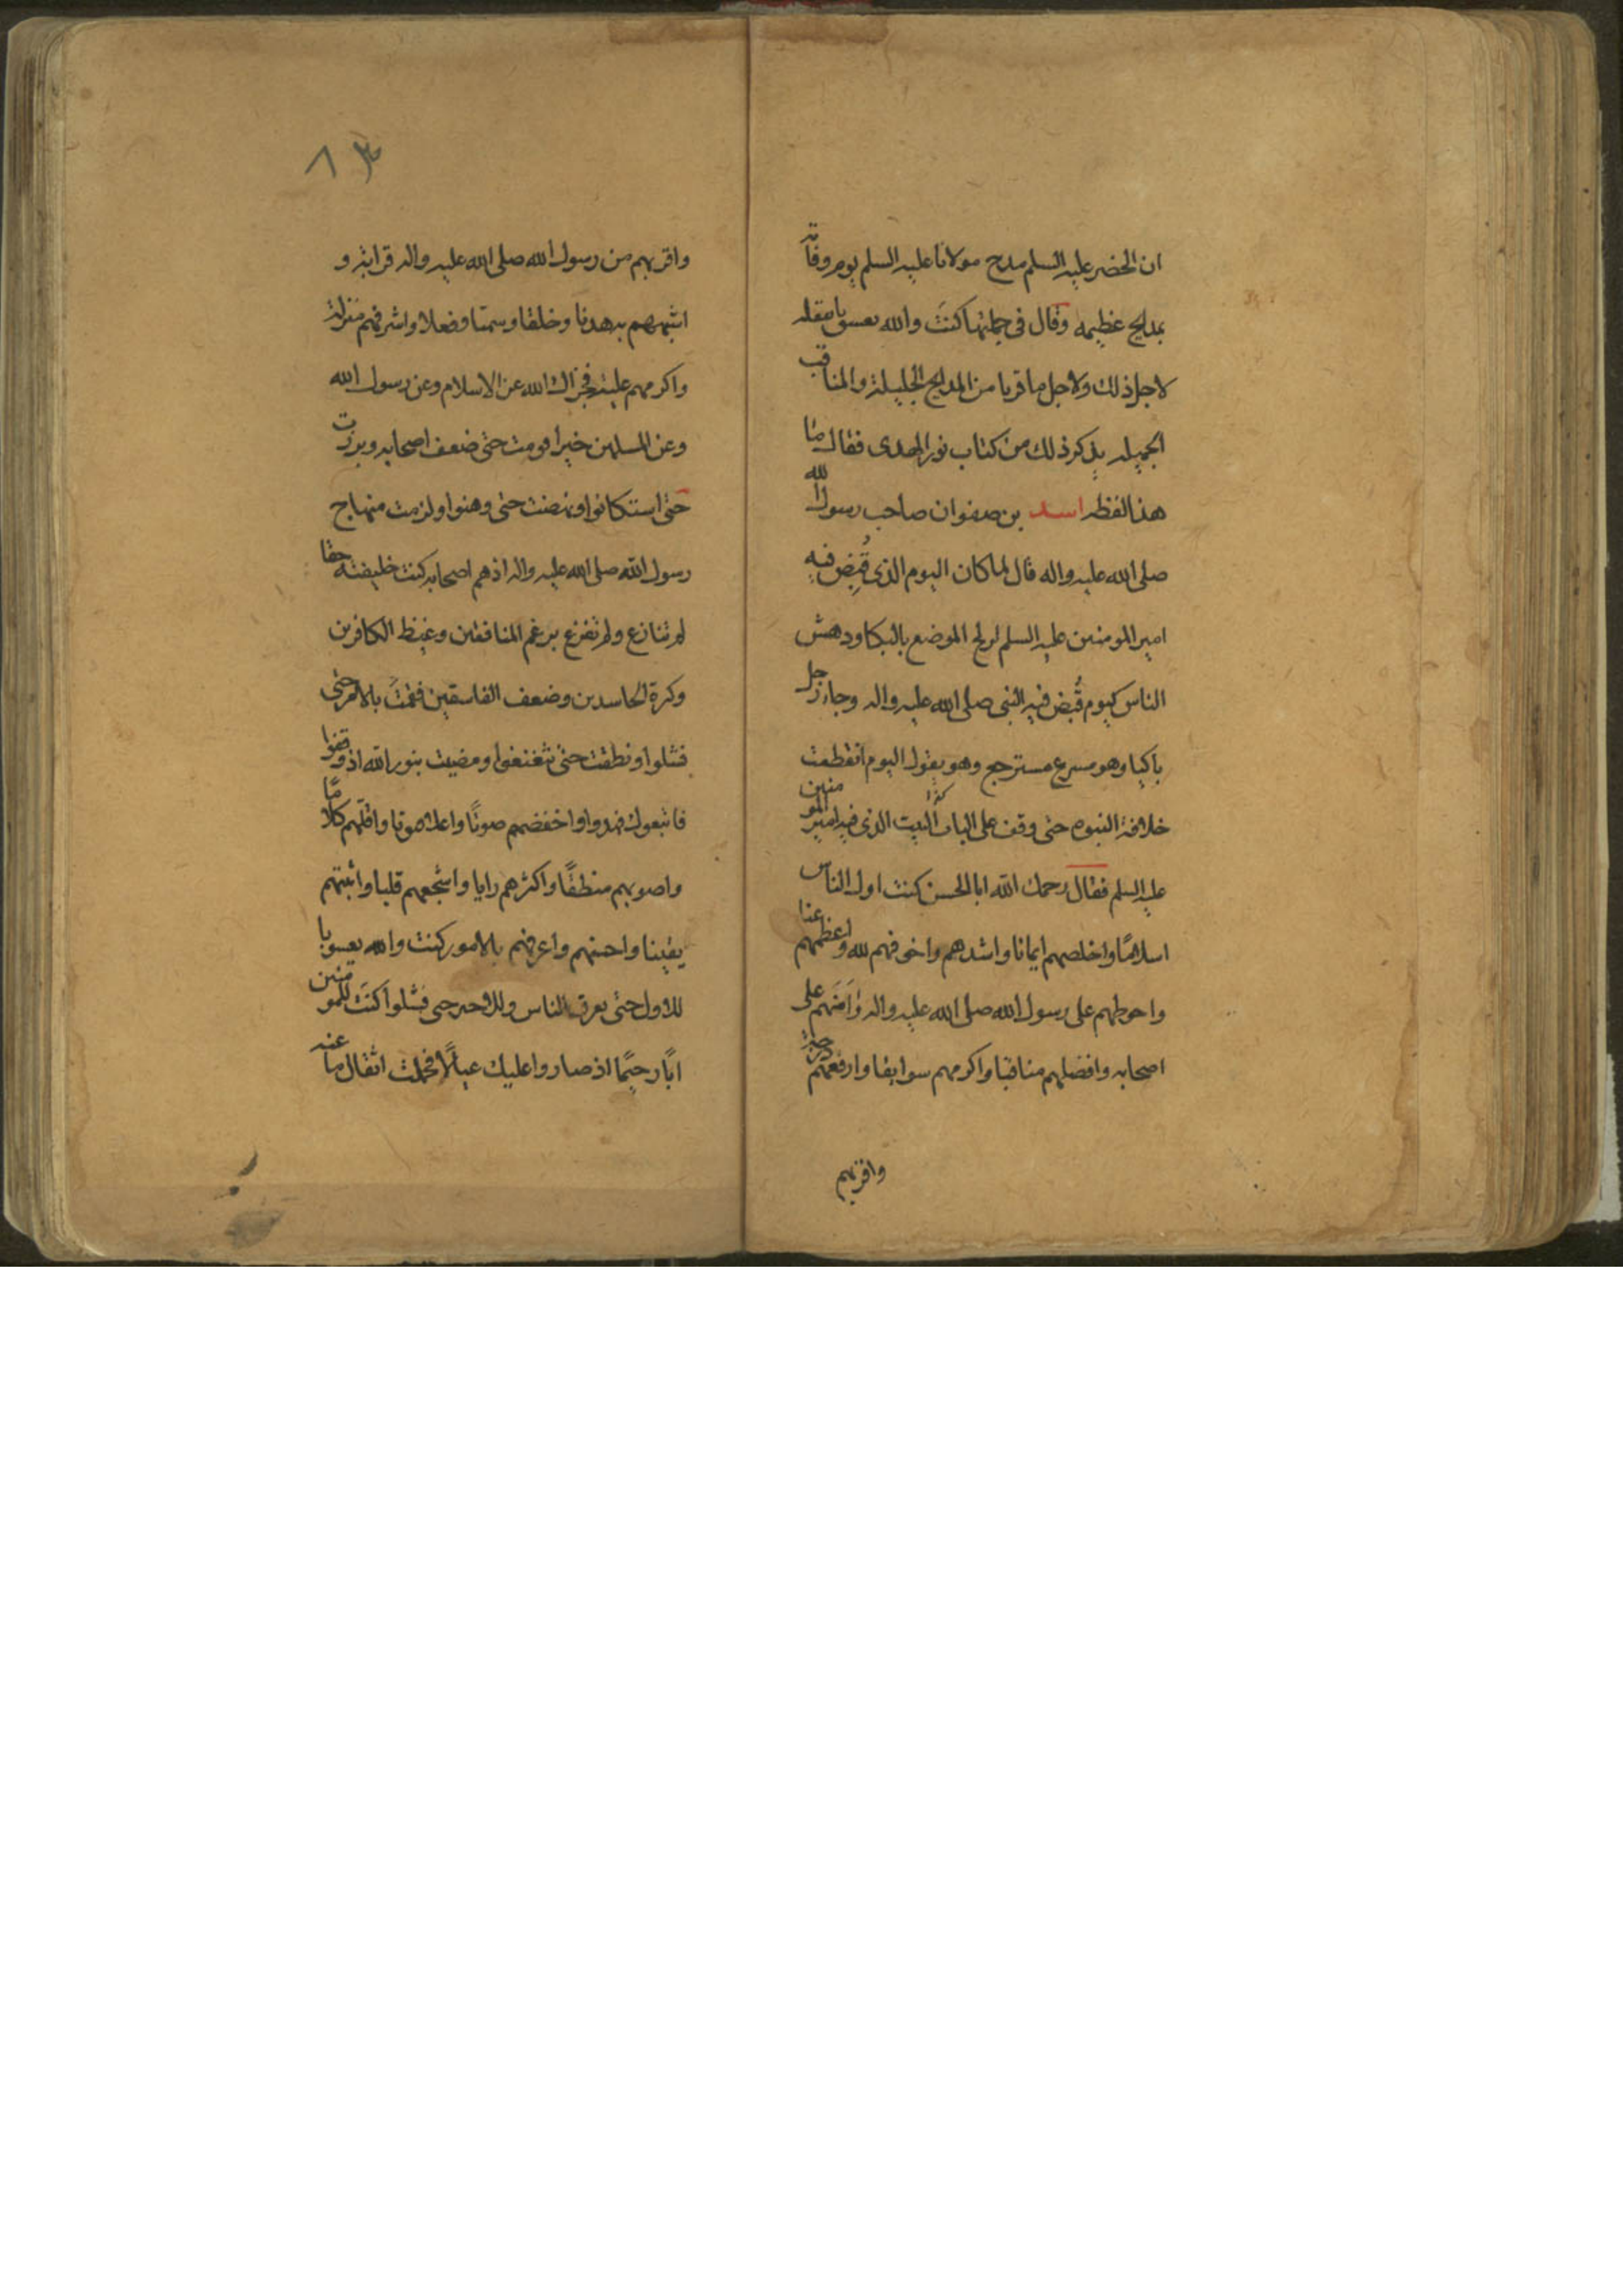 ان الخضر عليه السلم مدح مولانا عليه السلم يوم وفاته
بمدايح عظيمه وقال في جملتها كنت والله يعسوبا فنقله
لاجل ذلك ولاجل ما قربا من المدايح الجليلة والمناقب
الجميله بذكر ذلك من كتاب نور الهدى فقال ما
هذا لفظه اسد بن صفوان صاحب رسول الله
صلى الله عليه واله قال لما كان اليوم الذي قُبِض فيه
امير المومنين عليه السلم ارتج الموضع بالبكا ودهش
الناس كيوم قُبض فيه النبي صلى الله عليه واله وجاء رجل
باكيا وهو مسرع مسترجع وهو يقول اليوم انقطعت
خلافة النبوه حتى وقف على الباب البيت الذي فيه امير المومنين
عليه السلم فقال رحمك الله ابا الحسن كنت اول الناس
اسلامًا واخلصهم ايمانا واشدهم واخوفهم لله واعظمهم عنا
واحوطهم على رسول الله صلى الله عليه واله وَآمَنَهم على
اصحابه وافضلهم مناقبا واكرمهم سوابقا وارفعهم درجة
واقربهم
٨٣
واقربهم من رسول الله صلى الله عليه واله قرابة و
اشبههم به هديا وخلقا وسمتا وفعلا واشرفهم منزلة
واكرمهم عليه فجزاك الله عن الاسلام وعن رسول الله
وعن المسلمين خيرا قومت حتى ضعف اصحابه وبرزت
حتى استكانوا ونهضت حتى وهنوا ولزمت منهاج
رسول الله صلى الله عليه واله اذ هم اصحابه كنت خليفته حقا
لم تنازع ولم تفزع برغم المنافقين وغيظ الكافرين
وكرة الحاسدين وضعف الفاسقين فقمتَ بالامر حتى
فشلوا ونطقت حتى تغتغوا ومضيت بنور الله اذ وقفوا
فاتبعوك فهدوا واخفضهم صوتًا واعلا صوتا واقلهم كلامًا
واصوبهم منطقًا واكثرهم رايا واشجعهم قلبا واثبتهم
يقينا واحسنهم واعرفهم بالامور كنت والله يعسوبا
للاول حتى تعرق الناس وللاخر حين فشلوا كنتَ للمومنين
ابًا رحيمًا اذ صاروا عليك عيالًا فحملت اثقال ما عنه